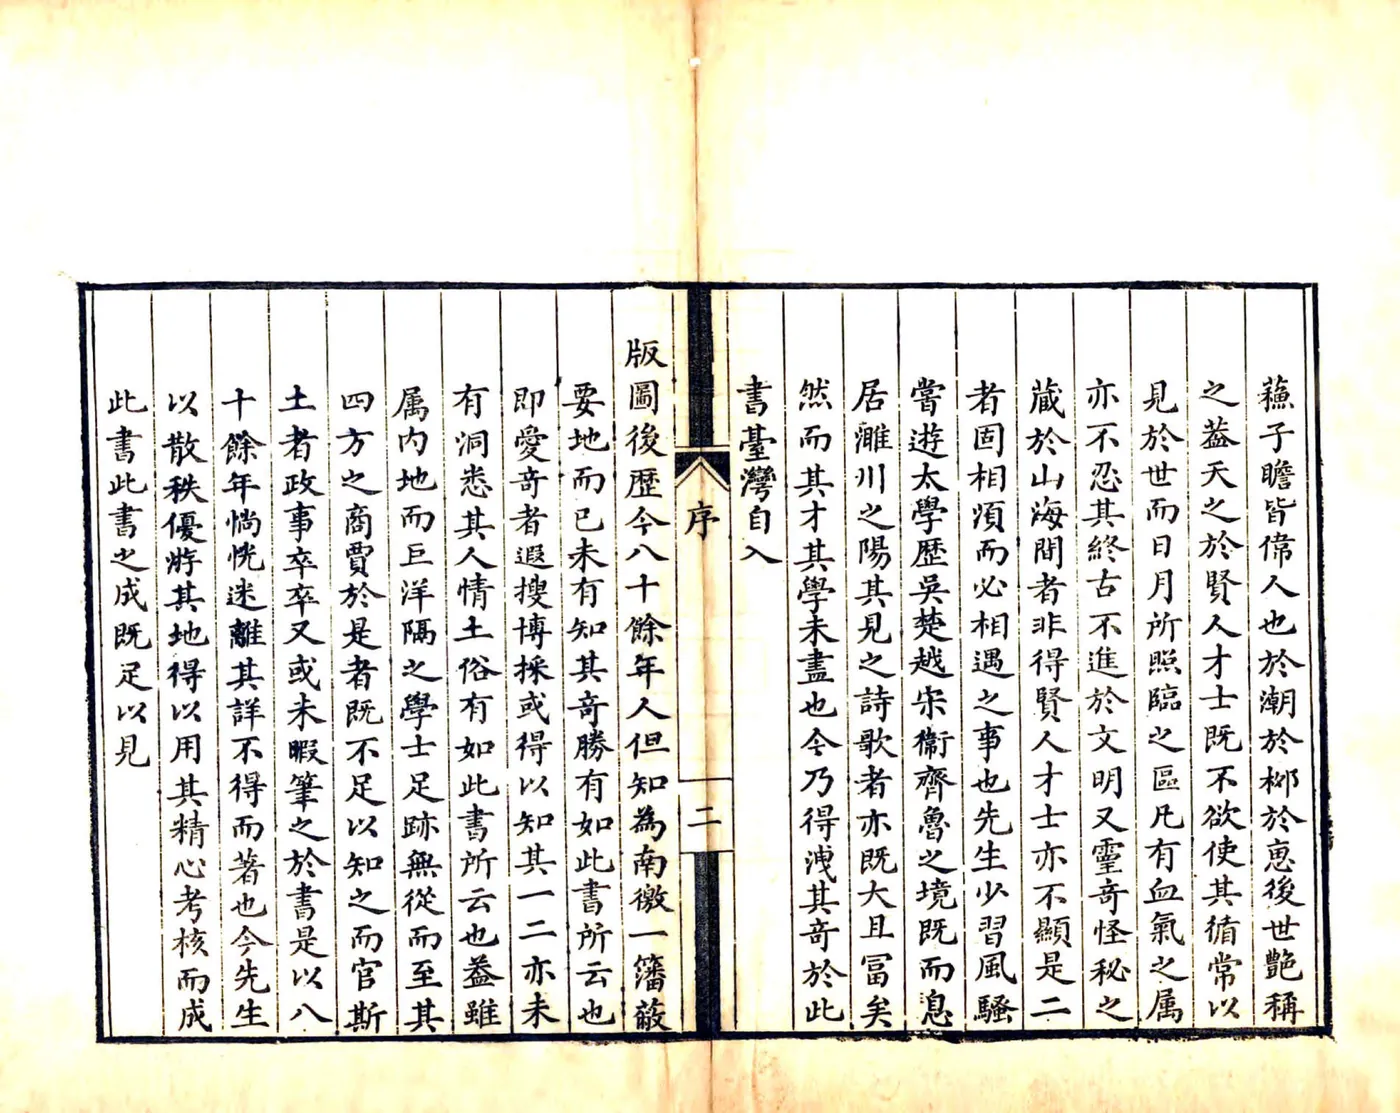 蘓子瞻皆偉人也於潮於栁於惠後世艷稱
之葢天之於賢人才士既不欲使其循常以
見於世而日月所照臨之區凡有血氣之属
亦不忍其終古不進於文明又靈奇怪秘之
蔵於山海間者非得賢人才士亦不顯是二
者固相湏而必相遇之事也先生少習風騷
嘗遊太學歴吳楚越宋衞齊魯之境既而息
居灉川之陽其見之詩歌者亦既大且冨矣
然而其才其學未盡也今乃得洩其奇於此
書臺灣自入
序
二
版圖後歴今八十餘年人但知為南徼一籓蔽
要地而已未有知其奇勝有如此書所云也
即愛奇者遐搜博採或得以知其一二亦未
有洞悉其人情土俗有如此書所云也葢雖
属内地而巨洋隔之學士足跡無從而至其
四方之商賈於是者既不足以知之而官斯
土者政事卒卒又或未暇筆之於書是以八
十餘年惝恍迷離其詳不得而著也今先生
以散秩優游其地得以用其精心考核而成
此書此書之成既足以見